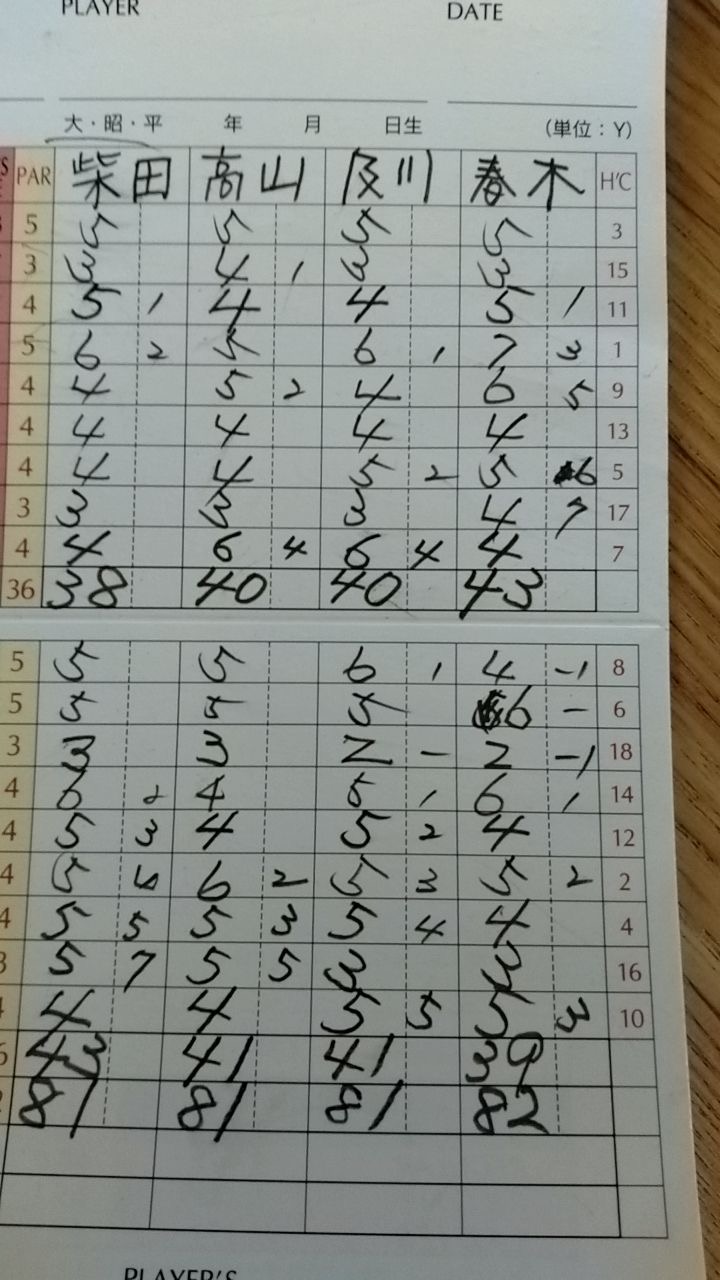 PLAYER DATE
大・昭・平 年 月 日生 (単位：Y)
PAR 柴田 高山 及川 春木 H'C
5 5 5 5 5 3
3 3 4 1 3 3 15
4 5 1 4 4 5 1 11
5 6 2 5 6 1 7 3 1
4 4 5 2 4 6 5 9
4 4 4 4 4 13
4 4 4 5 2 5 6 5
3 3 3 3 4 7 17
4 4 6 4 6 4 4 7
36 38 40 40 43
5 5 5 6 1 4 -1 8
5 5 5 5 6 - 6
3 3 3 2 - 2 -1 18
4 6 2 4 5 1 6 1 14
4 5 3 4 5 2 4 12
4 5 6 2 5 3 5 2 2
4 5 5 5 3 5 4 4 4
5 7 5 5 3 3 16
4 4 5 5 5 3 10
43 41 41 39
81 81 81 82
PLAYER'S